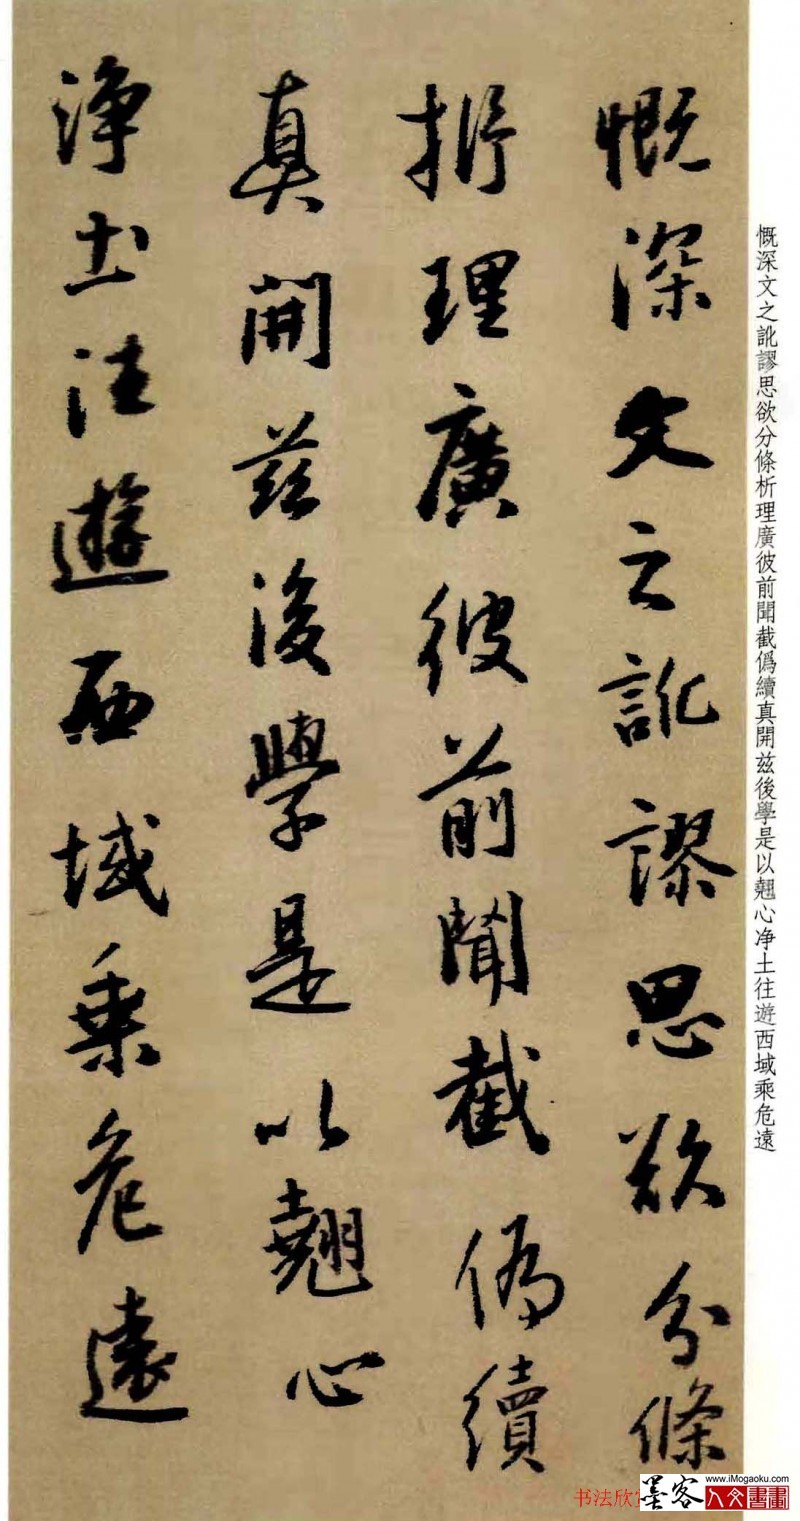 慨深文之訛謬思欲分條析理廣彼前聞截僞續真開兹後學是以翹心净土往遊西域乘危遠
慨深文之訛謬思欲分條
析理廣彼前聞截偽續
真開茲後學是以翹心
淨土往遊西域乘危遠
书法欣
墨客
www.iMogaoku.com
人文書畫